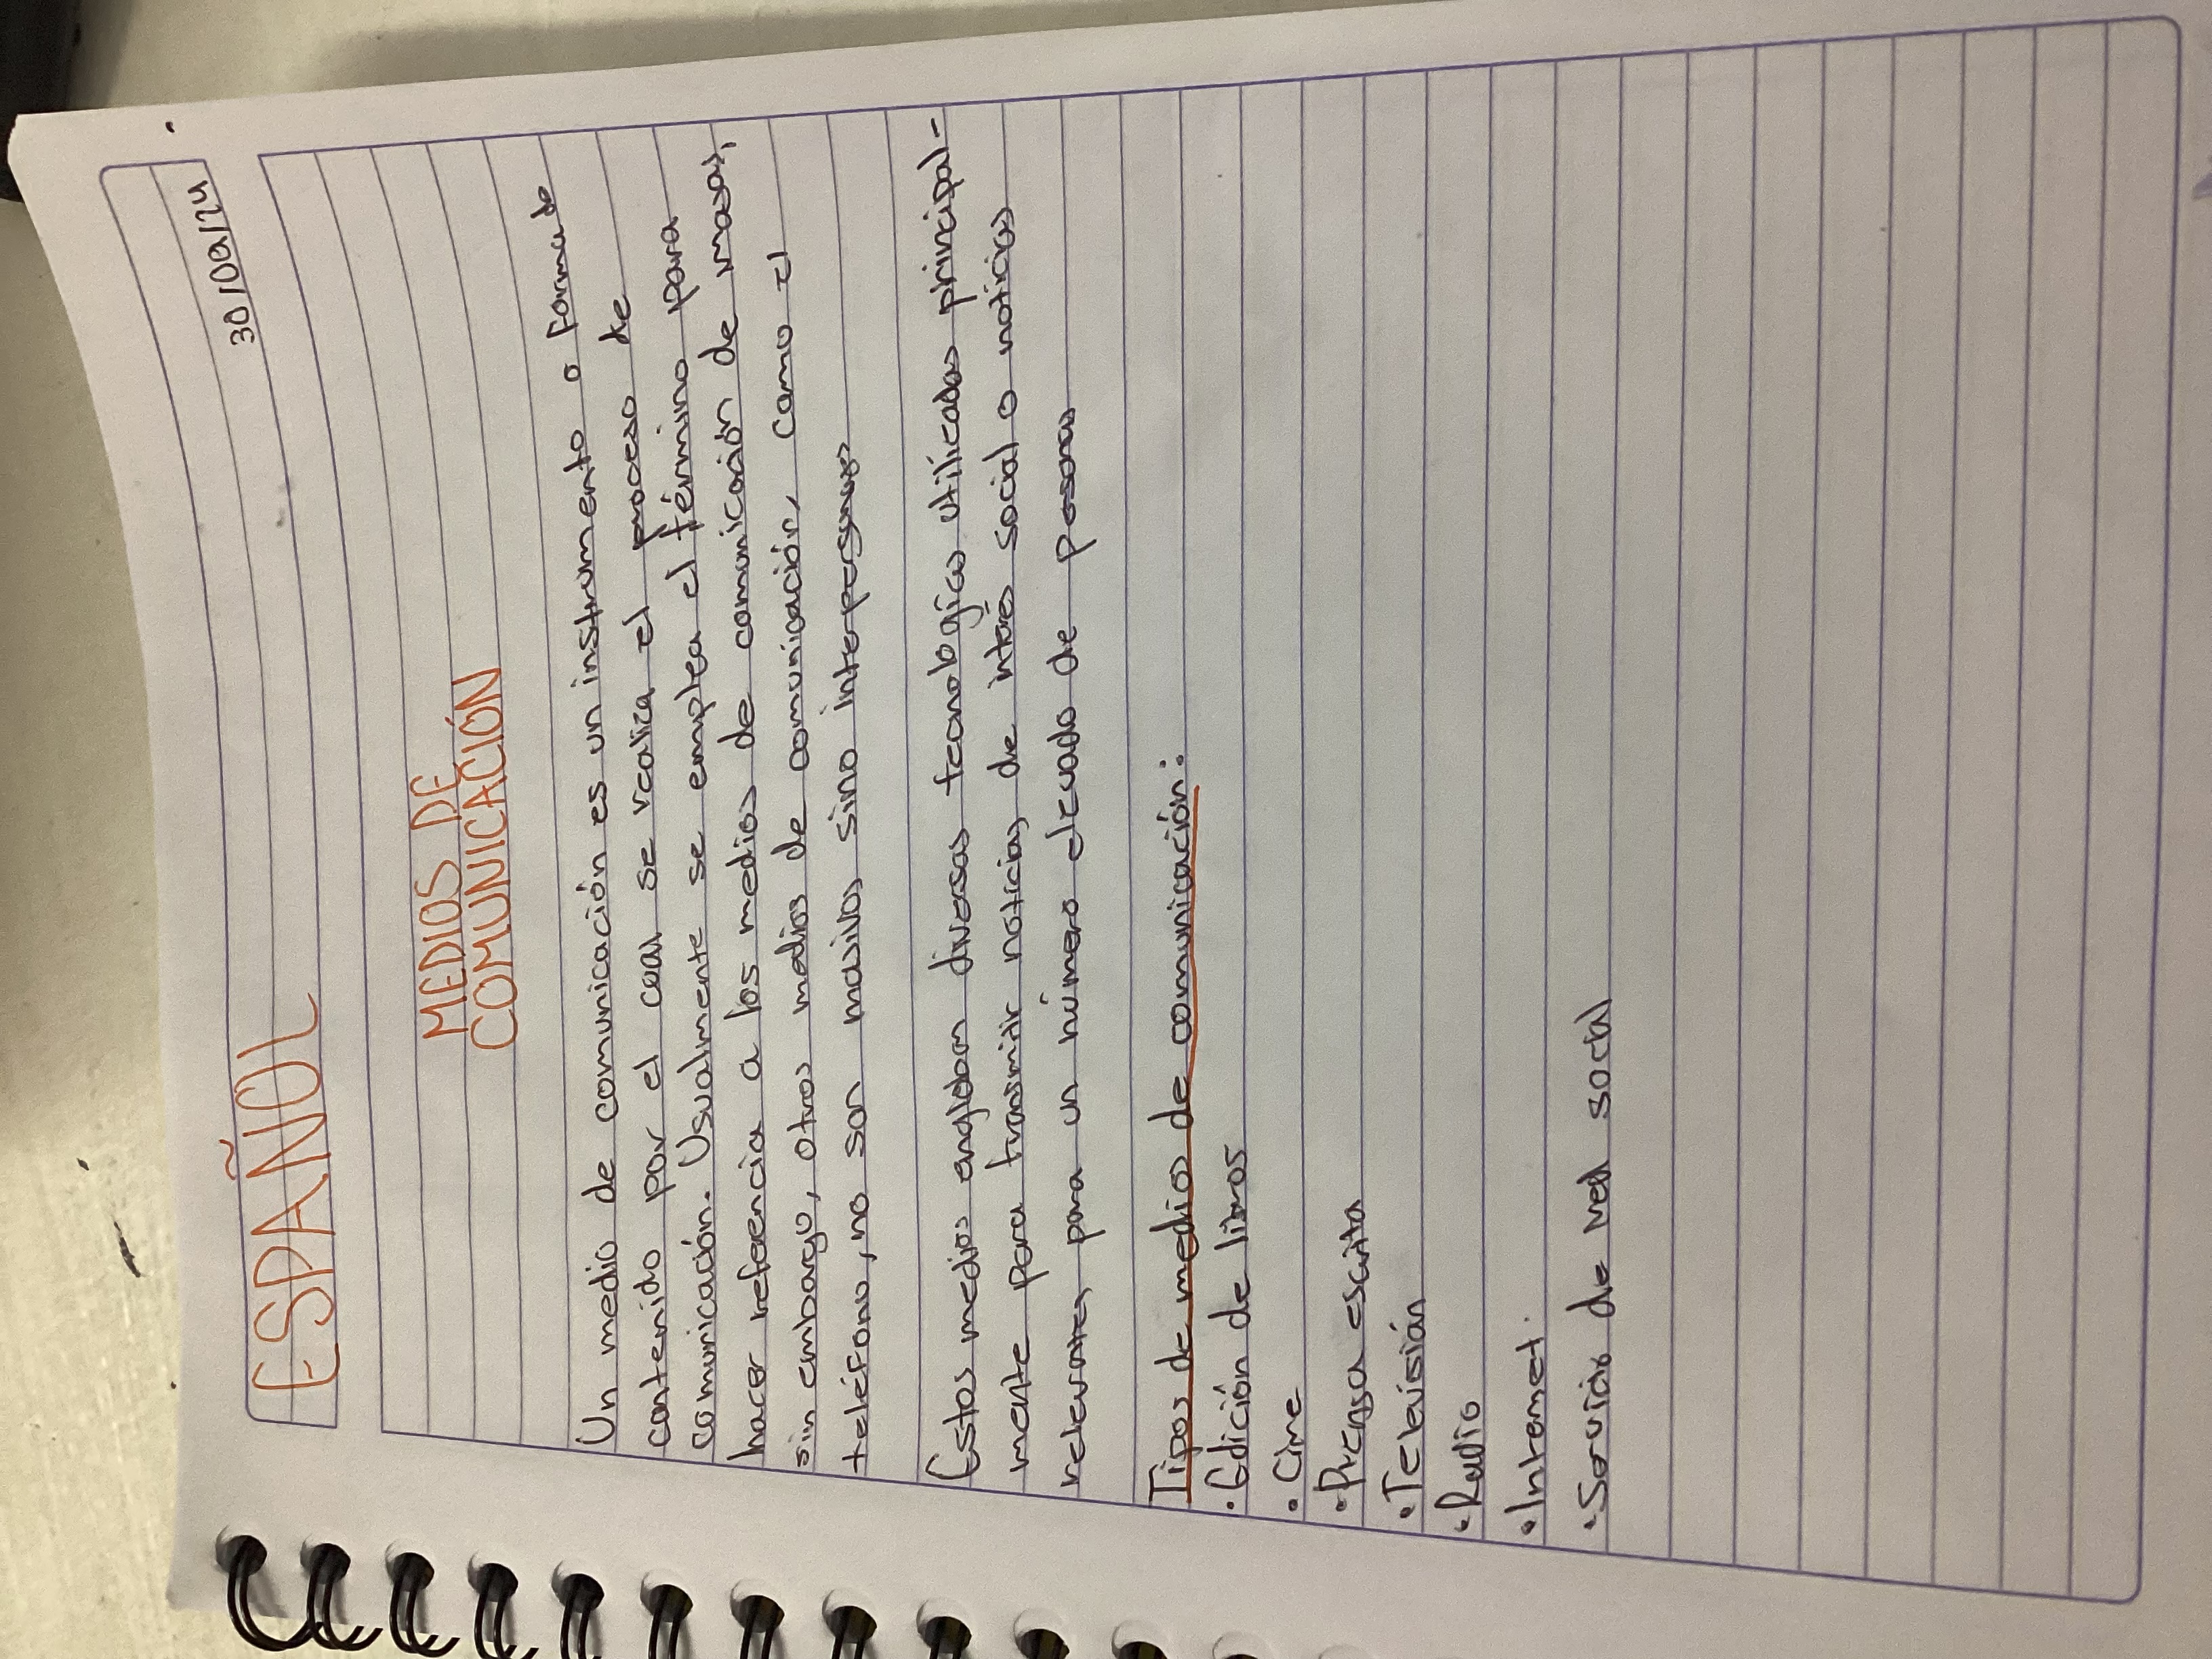 ESPAÑOL
30/09/24
MEDIOS DE
COMUNICACIÓN
Un medio de comunicación es un instrumento o forma de
contenido por el cual se realiza el proceso de
comunicación. Usualmente se emplea el término para
hacer referencia a los medios de comunicación de masas,
sin embargo, otros medios de comunicación, como el
teléfono, no son masivos sino interpersonales
Estos medios engloban diversas tecnologías utilizadas principal-
mente para trasmitir noticias de interés social o noticias
relevantes para un número elevado de pesonas
Tipos de medios de comunicación:
• Edición de libros
• Cine
• Prensa escrita
• Televisión
• Radio
• Internet.
• Servicios de red social